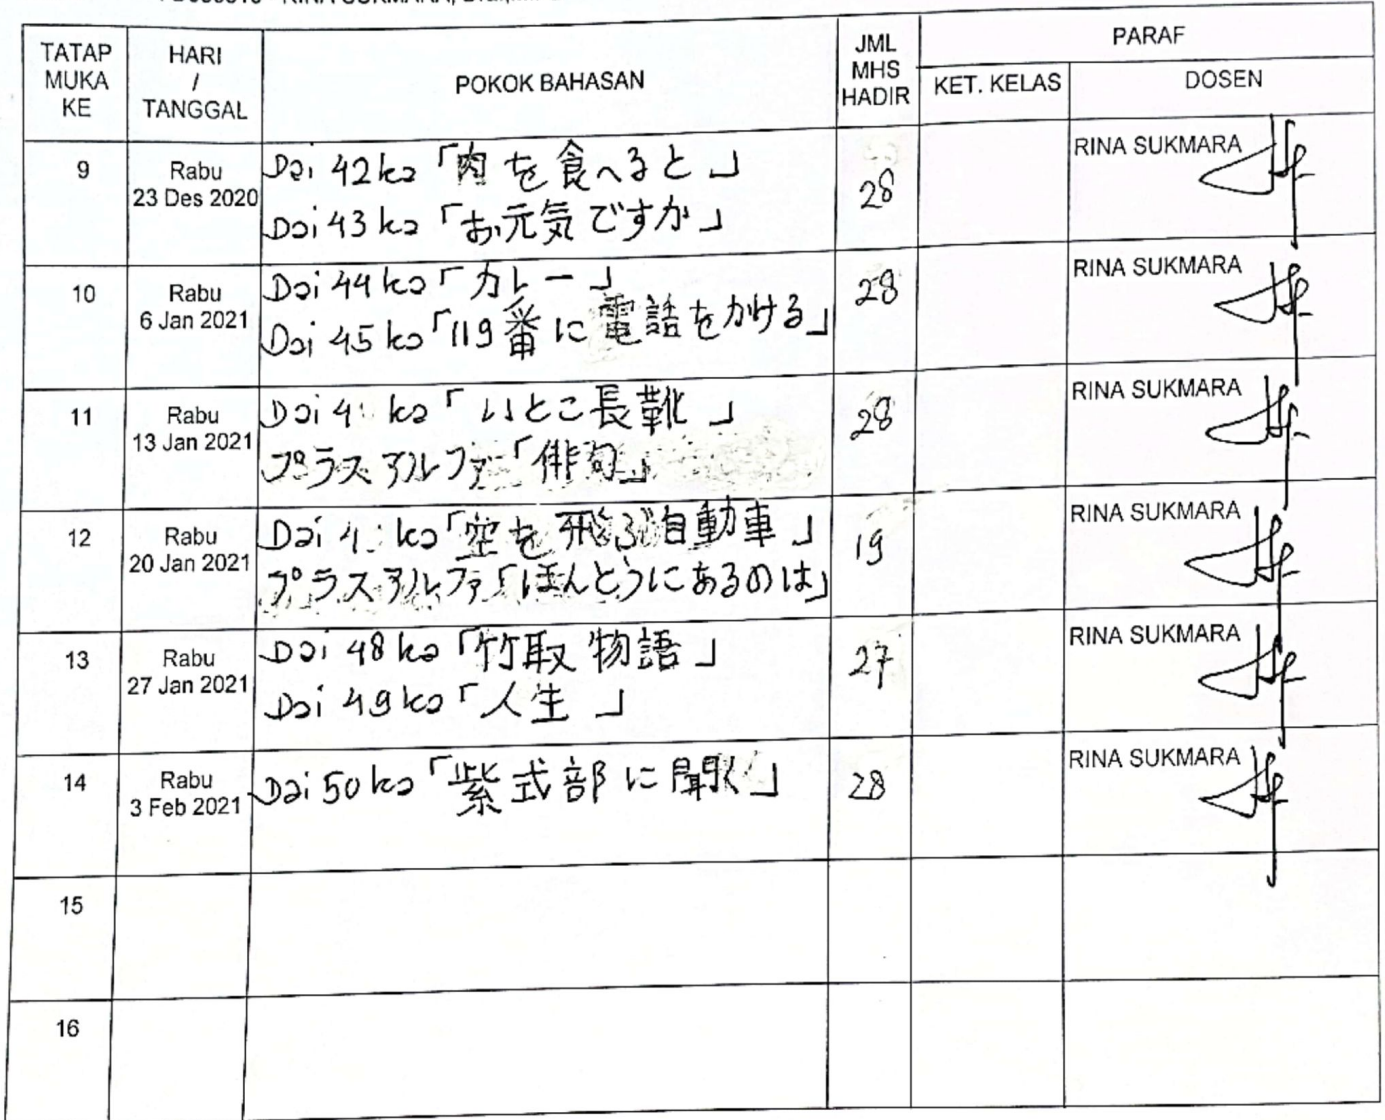 RINA SUKMARA,
TATAP MUKA KE
HARI / TANGGAL
POKOK BAHASAN
JML MHS HADIR
PARAF
KET. KELAS
DOSEN
9
Rabu
23 Des 2020
Dai 42 ka「肉を食べると」
Dai 43 ka「お元気ですか」
28
RINA SUKMARA
10
Rabu
6 Jan 2021
Dai 44 ka「カレー」
Dai 45 ka「119番に電話をかける」
28
RINA SUKMARA
11
Rabu
13 Jan 2021
Dai 4 ka「いとこ長靴」
プラスアルファ「俳句」
28
RINA SUKMARA
12
Rabu
20 Jan 2021
Dai 4 ka「空を飛ぶ自動車」
プラスアルファ「ほんとうにあるのは」
19
RINA SUKMARA
13
Rabu
27 Jan 2021
Dai 48 ka「竹取物語」
Dai 49 ka「人生」
27
RINA SUKMARA
14
Rabu
3 Feb 2021
Dai 50 ka「紫式部に聞く」
28
RINA SUKMARA
15
16